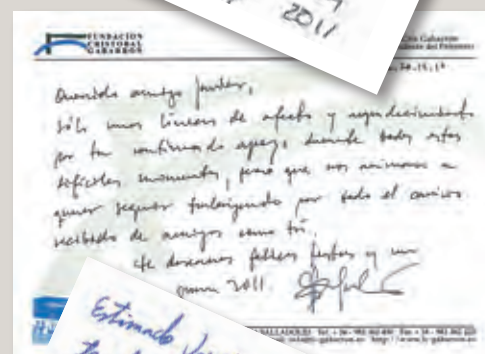 2011
FUNDACIÓN
CRISTÓBAL
GABARRÓN
Gabarrón
Presidente del Patronato
20.12.10
Querido amigo
Sólo unas líneas de afecto y agradecimiento
por tu continuado apoyo durante todos estos
difíciles momentos, pero que nos animan a
querer seguir trabajando por todo el cariño
recibido de amigos como tú.
Te deseamos felices fiestas y un
gran 2011.
Estimado
VALLADOLID Tel. + 34 - 983 362 490 Fax + 34 - 983